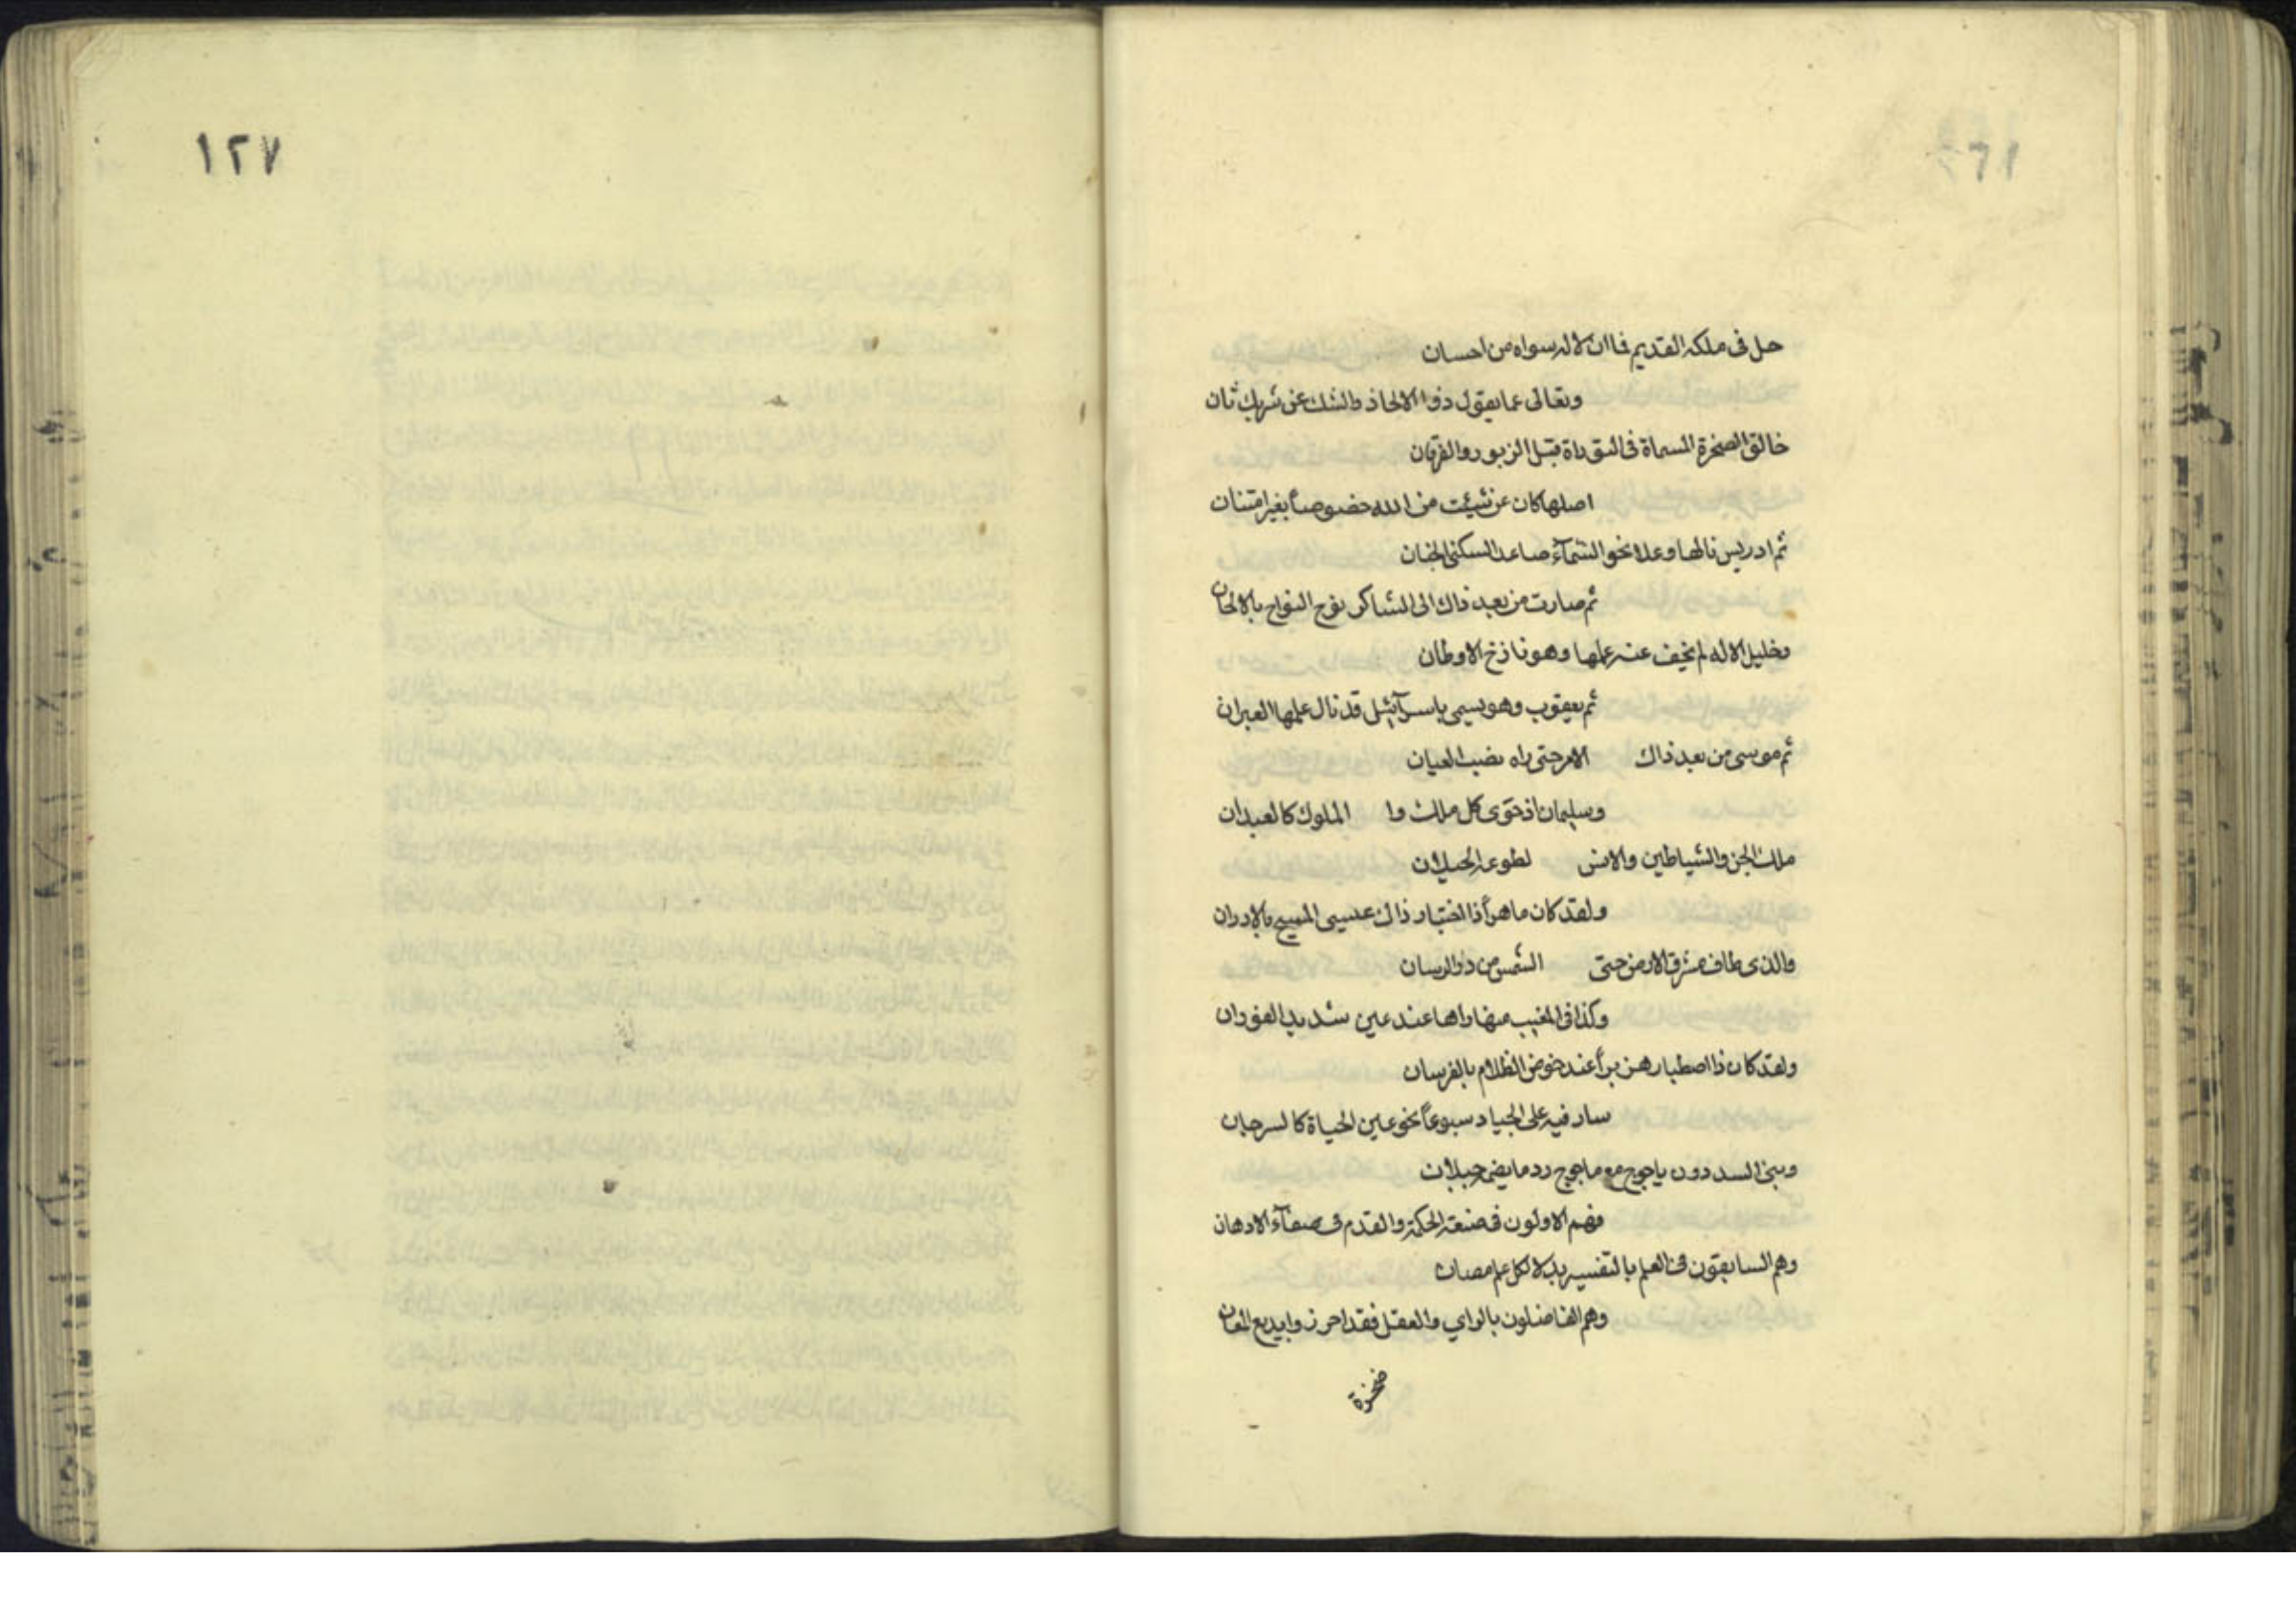 حل فى ملكه القديم فما ان لاله سواه من احسان
وتعالى عما يقول ذوا الالحاذ والشك عن شريك ثان
خالق الصخرة المسماة فى التوراة قبل الزبور والفرقان
اصلها كان عن شيئت من الله خصوصاً بغير امتنان
ثم ادريس نالها وعلا نحو السمآء صاعد السكنى الجنان
ثم صارت من بعد ذاك الى الشاكر نوح النواح بالالحان
وخليل الاله لم يخف عنه علمها وهو نازخ الاوطان
ثم يعقوب وهو يسمى باسرآئيل قد نال علمها العبران
ثم موسى من بعد ذاك الامر حتى راه نصب العيان
وسليمان اذ حوى كل ملك وا الملوك كالعبدان
ملك الجن والشياطين والانس لطوعه
ولقد كان ماهراً ذا اختبار ذاك عيسى المسيح بالادران
والذى طاف مشرق الارض حتى الشمس من
وكذا فى المغيب منها راها عند عين شديد الفوران
ولقد كان ذا اصطبار هزبراً عند خوض الظلام بالفرسان
سار فيه على الجياد سبوعاً نحو عين الحياة كالسرحان
وبنى السد دون ياجوج مع ماجوج ردما يضم جبلان
فهم الاولون فى صنعة الحكمة والقدم فى صفآء الاذهان
وهم السابقون فى العلم بالتفسير بدلا لكل علم مصان
وهم الفاضلون بالراي والعقل فقد احرزوا بديع المعان
١٢٧